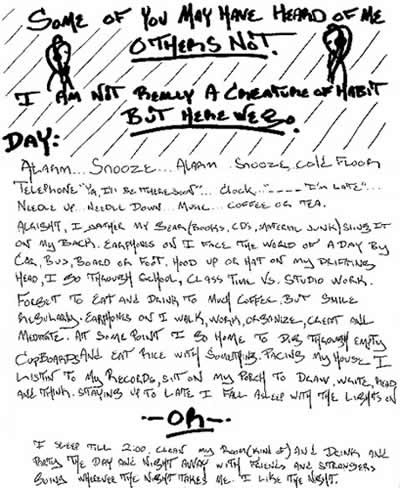 Some of You May Have Heard of Me
OTHERS NOT.
I AM NOT REALLY A CREATURE OF HABIT
BUT HERE WE GO.
DAY:
ALARM... SNOOZE... ALARM... SNOOZE, COLD FLOOR
TELEPHONE "YA, I'LL BE THERE SOON"... CLOCK..."---- I'M LATE"...
NEEDLE UP... NEEDLE DOWN... MUSIC... COFFEE OR TEA.
ALRIGHT, I GATHER MY GEAR (BOOKS, CDS, MATERIAL JUNK) SLING IT
ON MY BACK. EARPHONES ON I FACE THE WORLD OF A DAY BY
CAR, BUS, BOARD OR FOOT. HOOD UP OR HAT ON MY DRIFTING
HEAD, I GO THROUGH SCHOOL, CLASS TIME VS. STUDIO WORK.
FORGET TO EAT AND DRINK TO MUCH COFFEE, BUT SMILE
REGULARLY. EARPHONES ON I WALK, WORK, ORGANIZE, CREAT AND
MEDITATE. AT SOME POINT I GO HOME TO DIG THROUGH EMPTY
CUPBOARDS AND EAT RICE WITH SOMETHING. PACING MY HOUSE I
LISTIN TO MY RECORDS, SIT ON MY PORCH TO DRAW, WRITE, READ
AND THINK. STAYING UP TO LATE I FALL ASLEEP WITH THE LIGHTS ON
-OR-
I SLEEP TILL 2:00. CLEAN MY ROOM (KIND OF) AND DRINK AND
PARTY THE DAY AND NIGHT AWAY WITH FRIENDS AND STRANGERS
GOING WHEREVER THE NIGHT TAKES ME. I LIKE THE NIGHT.